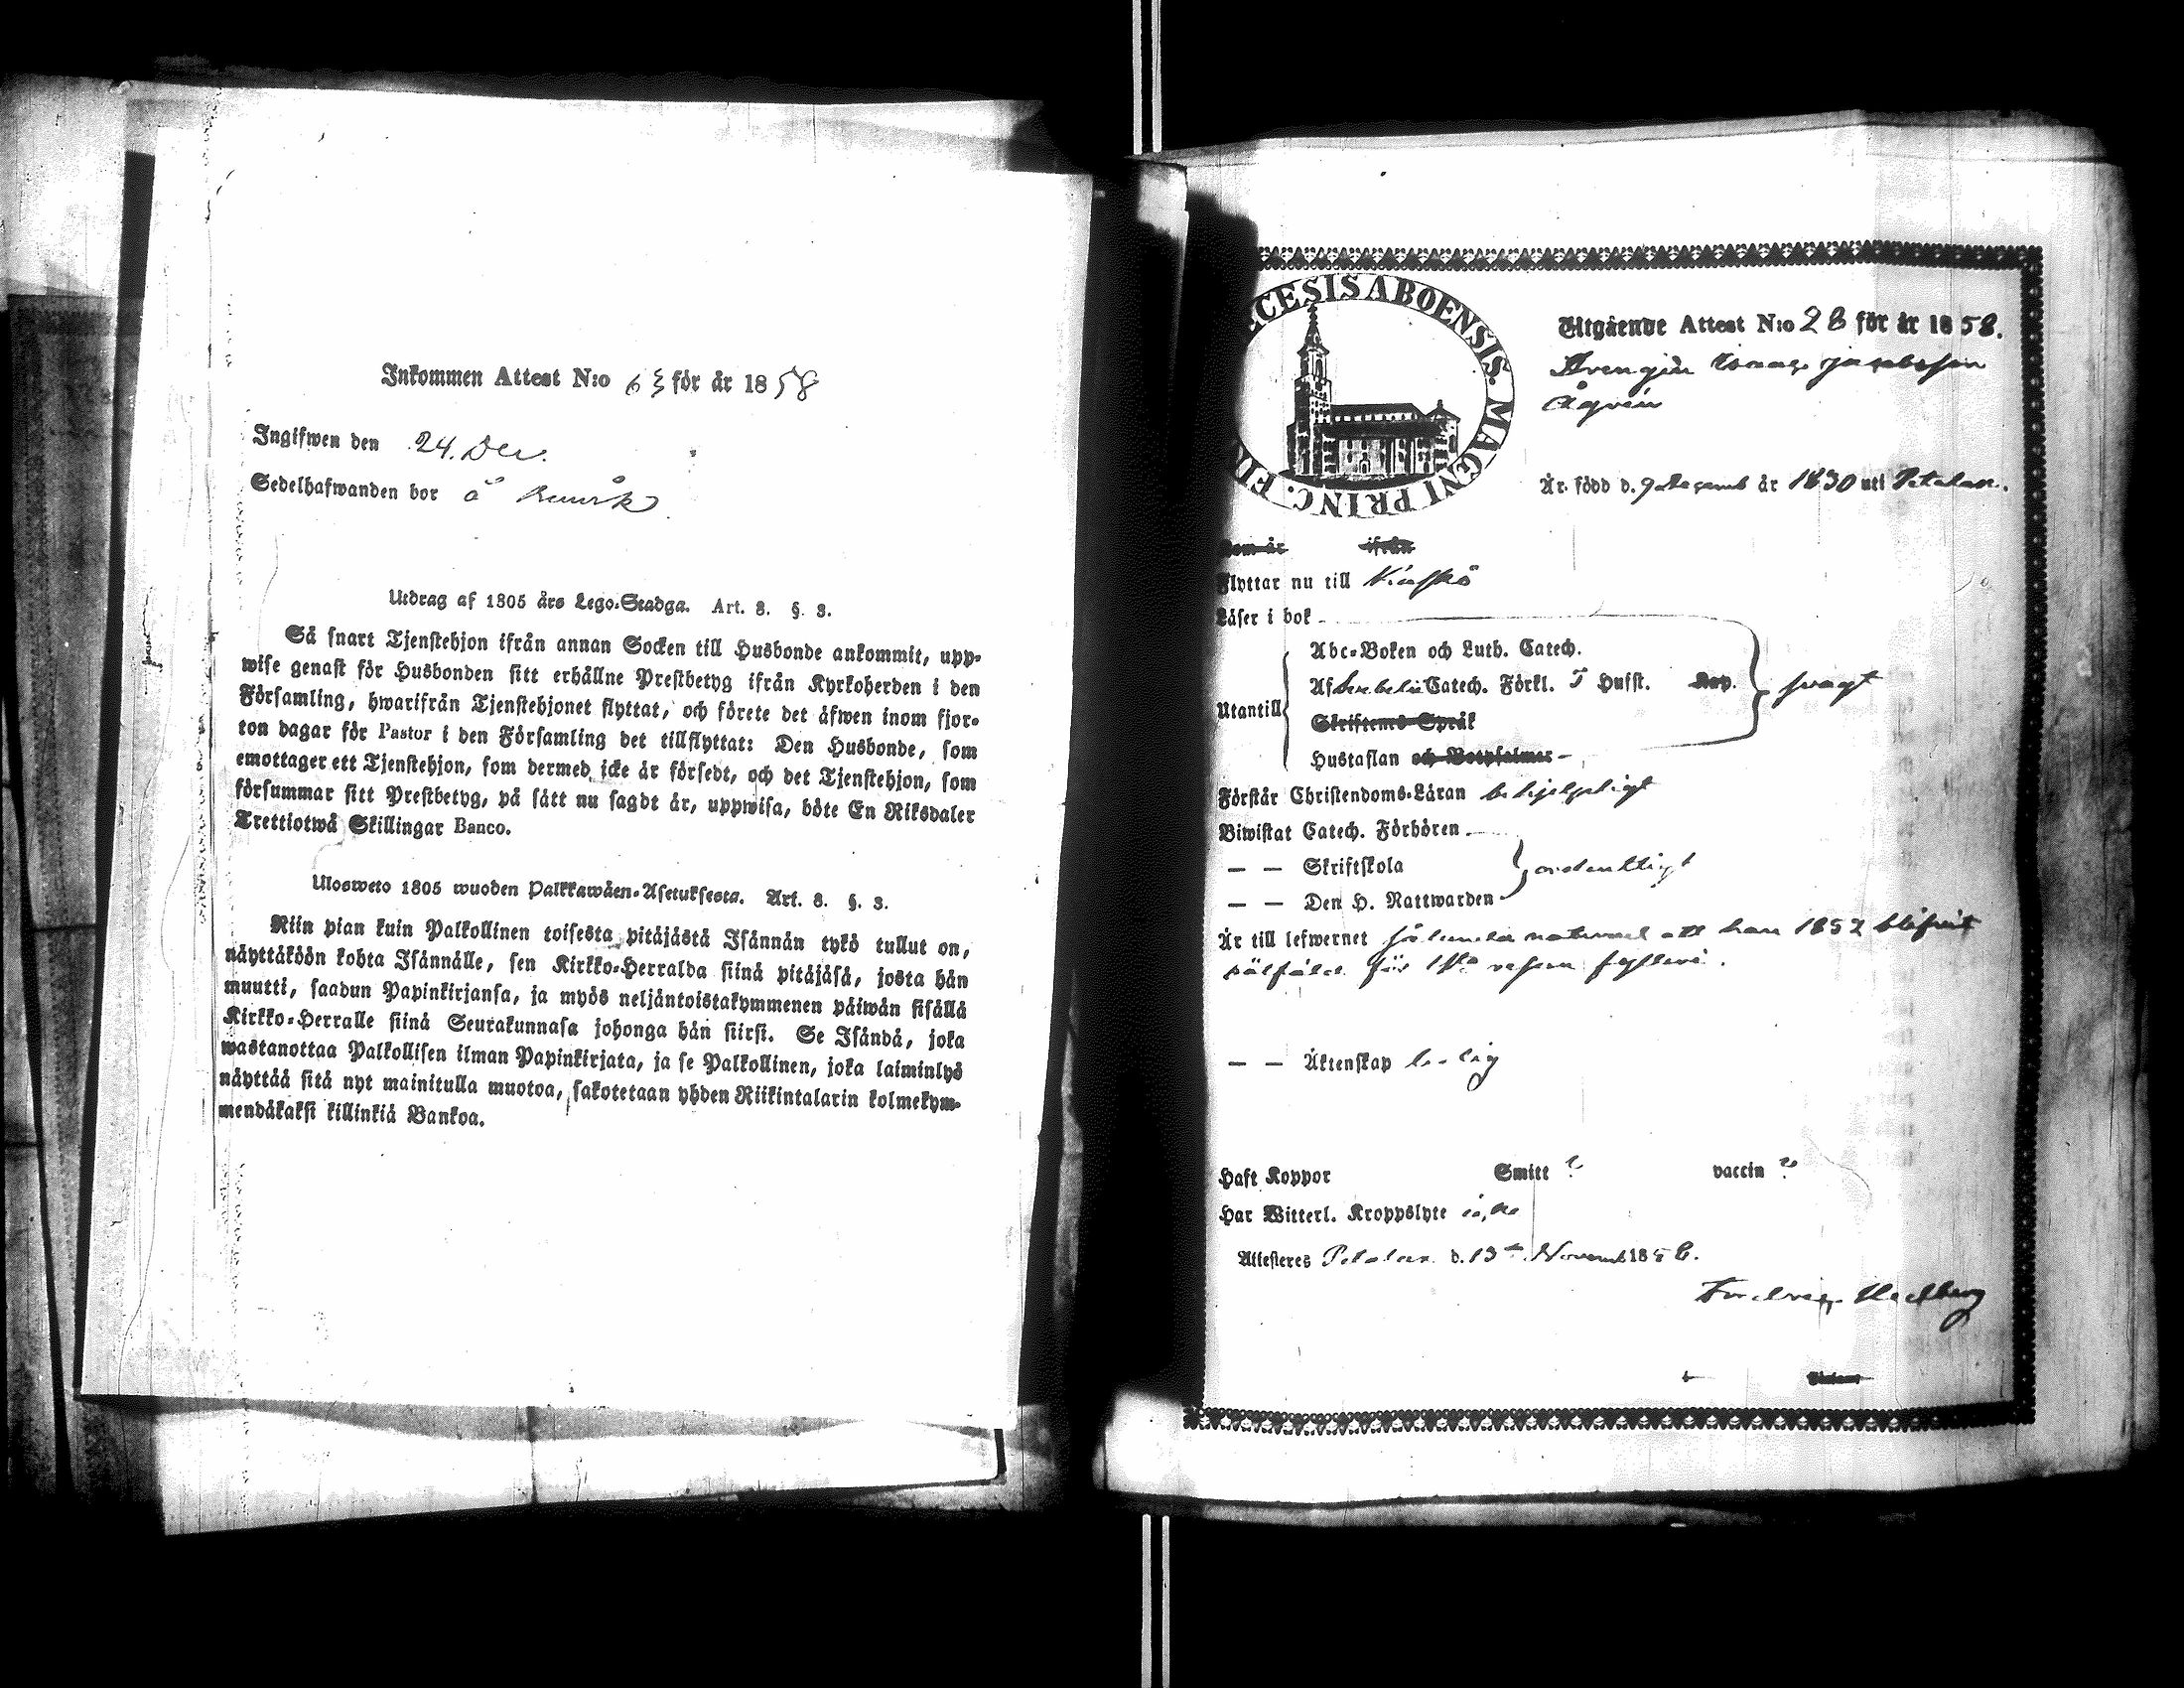 Inkommen Attest N:o 63 för år 1858
Ingifwen den 24. Dec.
Sedelhafwanden bor å
Utdrag af 1805 års Lego-Stadga. Art. 8. §. 3.
Så snart Tjenstehjon ifrån annan Socken till Husbonde ankommit, upp-
wise genast för Husbonden sitt erhållne Prestbetyg ifrån Kyrkoherden i den
Församling, hwarifrån Tjenstehjonet flyttat, och förete det äfwen inom fjor-
ton dagar för Pastor i den Församling det tillflyttat: Den Husbonde, som
emottager ett Tjenstehjon, som dermed icke är försedt, och det Tjenstehjon, som
försummar sitt Prestbetyg, på sätt nu sagdt är, uppwisa, böte En Riksdaler
Trettiotwå Skillingar Banco.
Ulosweto 1805 wuoden Palkkawäen-Asetuksesta. Art. 8. §. 3.
Niin pian kuin Palkollinen toisesta pitäjästä Isännän tykö tullut on,
näyttäköön kohta Isännälle, sen Kirkko-Herralda siinä pitäjäsä, josta hän
muutti, saadun Papinkirjansa, ja myös neljäntoistakymmenen päiwän sisällä
Kirkko-Herralle siinä Seurakunnasa johonga hän siirsi. Se Isändä, joka
wastanottaa Palkollisen ilman Papinkirjata, ja se Palkollinen, joka laiminlyö
näyttää sitä nyt mainitulla muotoa, sakotetaan yhden Riikintalarin kolmekym-
mendäkaksi killinkiä Bankoa.
CESIS ABOENSIS. MAGNI PRINC. FI
Utgående Attest N:o 28 för år 1858.
Drengen Isaac Jacobsson
Ågren
Är född d. 9 Decemb år 1830 uti Petalax.
Som är ifrån
Flyttar nu till Kaskö
Läser i bok
Abc-Boken och Luth. Catech.
Af Svebelii Catech. Förkl. 5 Hufst. Kap.
Utantill
svagt
Skriftens Språk
Hustaflan och Botpsalmer
Förstår Christendoms-Läran behjelpligt
Biwistat Catech. Förhören
— — Skriftskola
ordentligt
— — Den H. Nattwarden
Är till lefwernet sålunda noterad att han 1852 blifvit
sakfäld för 1sta resan fylleri.
— — Äktenskap ledig
Haft Koppor Smitt ? vaccin ?
Har Witterl. Kroppslyte icke
Attesteres Petalax d. 13 Novemb 1858.
Fredrik Hedberg